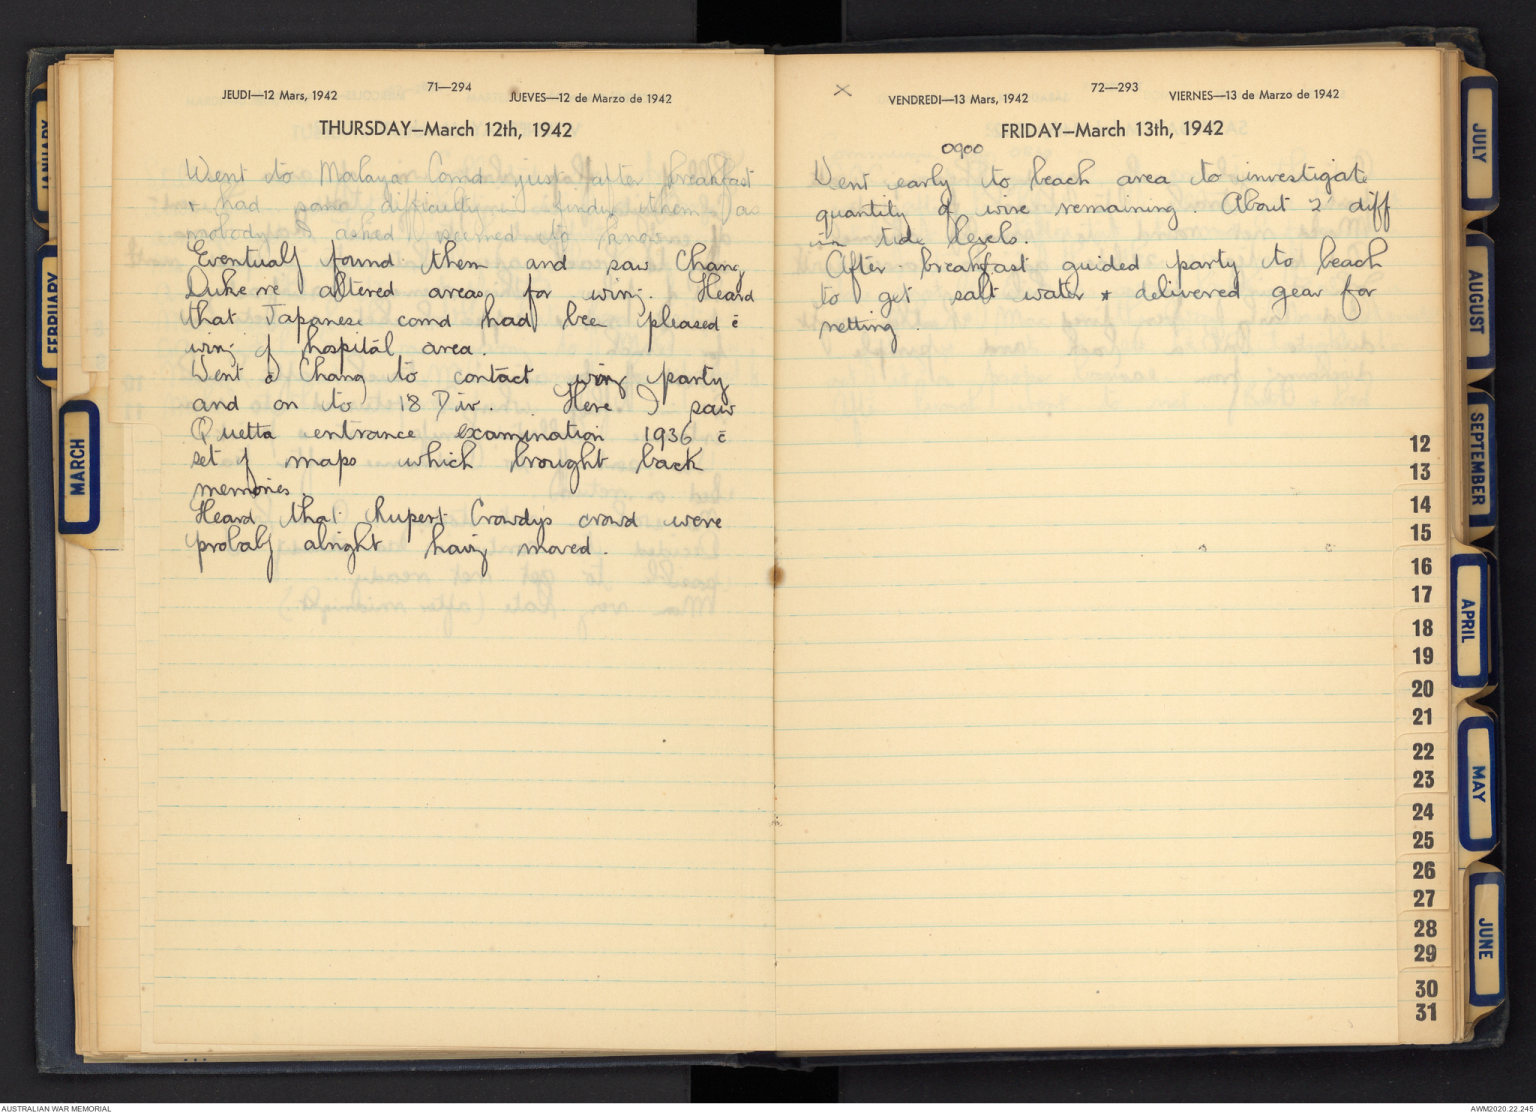 JEUDI—12 Mars, 1942
71—294
JUEVES—12 de Marzo de 1942
THURSDAY—March 12th, 1942
Went to Malaya Comd just after breakfast
+ had some difficulty in finding them (as
nobody I asked seemed to know
Eventually found them and saw Chang
Duke re altered areas for wiring. Heard
that Japanese comd had been pleased c̄
wiring of hospital area.
Went Changi to contact wiring party
and on to 18 Div. Here I saw
Quetta entrance examination 1936 c̄
set of maps which brought back
memories.
Heard that Rupert Crowdys crowd were
probably alright having moved.
X
VENDREDI—13 Mars, 1942
72—293
VIERNES—13 de Marzo de 1942
FRIDAY—March 13th, 1942
0900
Went early to beach area to investigate
quantity of wire remaining. About 2' diff
in tide levels.
After breakfast guided party to beach
to get salt water + delivered gear for
netting.
JANUARY
FEBRUARY
MARCH
JULY
AUGUST
SEPTEMBER
APRIL
MAY
JUNE
12
13
14
15
16
17
18
19
20
21
22
23
24
25
26
27
28
29
30
31
AUSTRALIAN WAR MEMORIAL
AWM2020.22.245